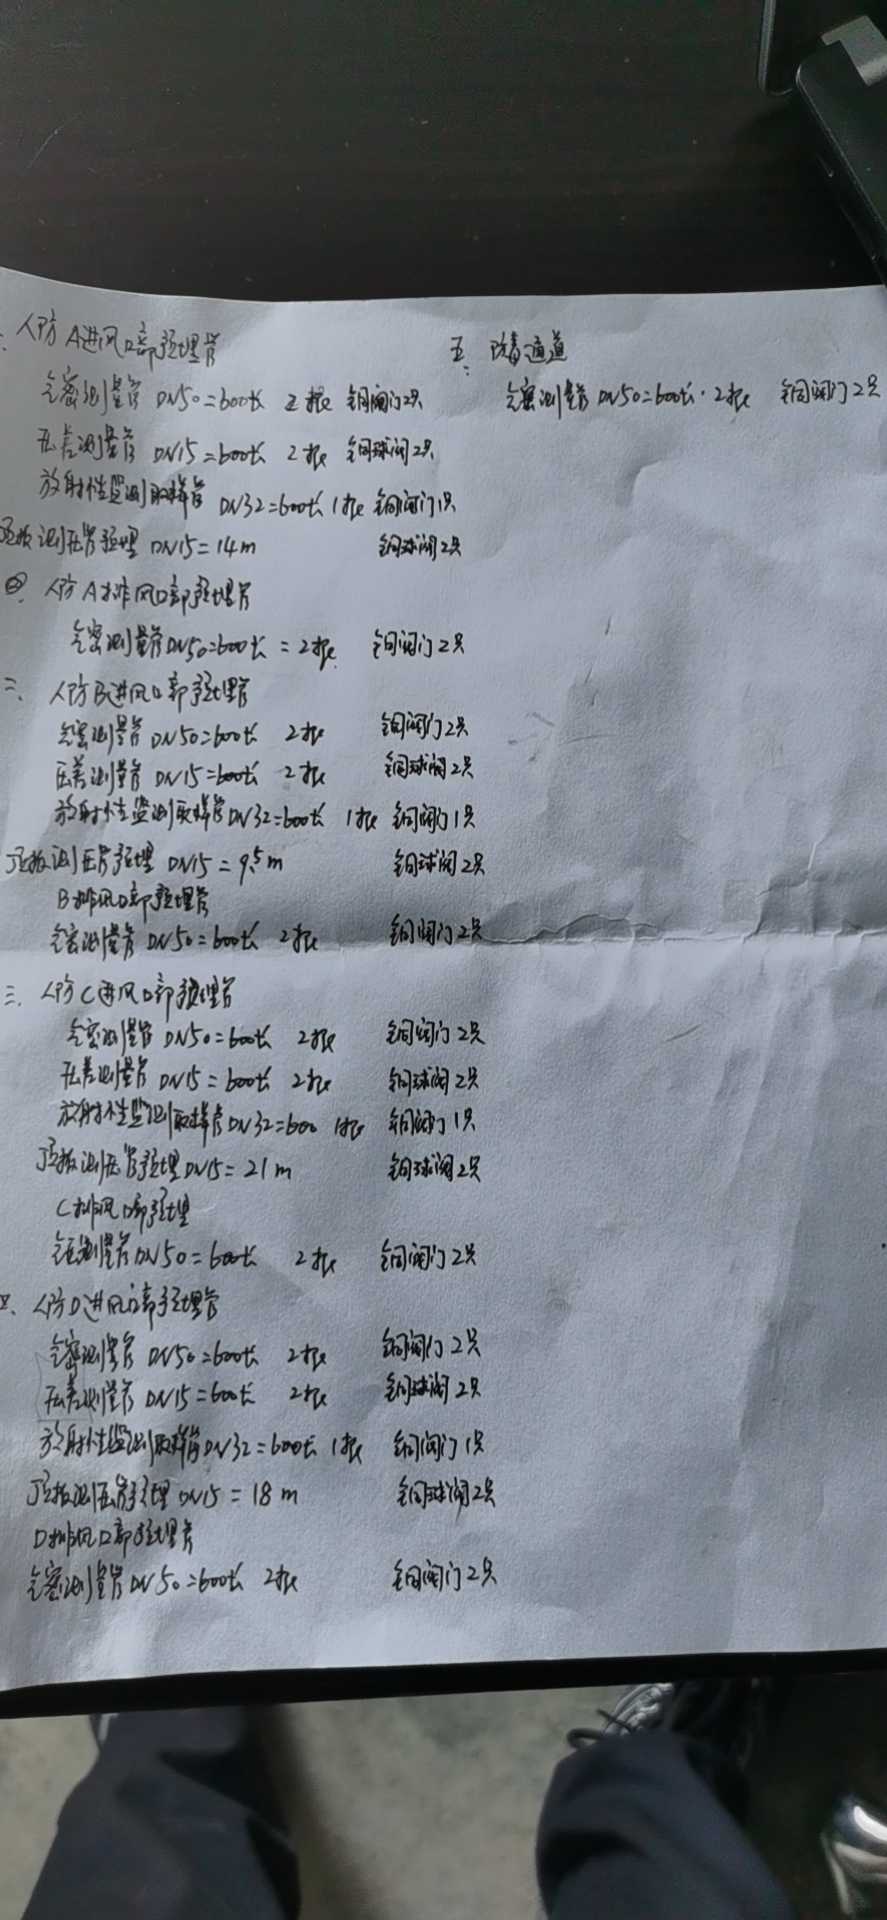 一、人防A进风口部预埋管
气密测量管 DN50=600长 2根 铜闸门2只
压差测量管 DN15=600长 2根 铜球阀2只
放射性监测取样管 DN32=600长 1根 铜闸门1只
顶板测压管预埋 DN15=14m 铜球阀2只
人防A排风口部预埋管
气密测量管DN50=600长=2根 铜闸门2只
二、人防B进风口部预埋管
气密测量管 DN50=600长 2根 铜闸门2只
压差测量管 DN15=600长 2根 铜球阀2只
放射性监测取样管DN32=600长 1根 铜闸门1只
顶板测压管预埋 DN15=9.5m 铜球阀2只
B排风口部预埋管
气密测量管 DN50=600长 2根 铜闸门2只
三、人防C进风口部预埋管
气密测量管 DN50=600长 2根 铜闸门2只
压差测量管 DN15=600长 2根 铜球阀2只
放射性监测取样管DN32=600 1根 铜闸门1只
顶板测压管预埋DN15=21m 铜球阀2只
C排风口部预埋
气密测量管DN50=600长 2根 铜闸门2只
四、人防D进风口部预埋管
气密测量管 DN50=600长 2根 铜闸门2只
压差测量管 DN15=600长 2根 铜球阀2只
放射性监测取样管DN32=600长 1根 铜闸门1只
顶板测压管预埋 DN15=18m 铜球阀2只
D排风口部预埋管
气密测量管DN50=600长 2根 铜闸门2只
五、防毒通道
气密测量管 DN50=600长·2根 铜闸门2只